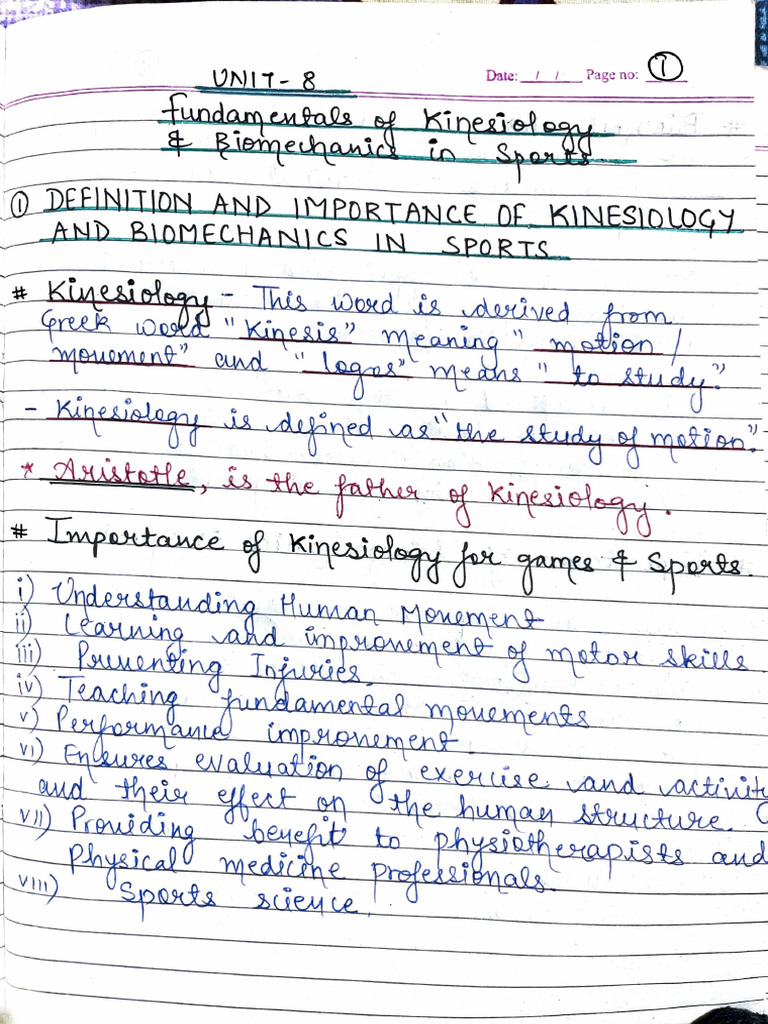 UNIT- 8
Date: __/__/__ Page no: 1
fundamentals of Kinesiology
& Biomechanics in Sports
① DEFINITION AND IMPORTANCE OF KINESIOLOGY
AND BIOMECHANICS IN SPORTS
# Kinesiology - This word is derived from
Greek word "Kinesis" meaning "motion /
movement" and "logos" means "to study."
- Kinesiology is defined as "the study of motion."
* Aristotle, is the father of Kinesiology.
# Importance of Kinesiology for games & Sports.
i) Understanding Human Movement
ii) Learning and improvement of motor skills
iii) Preventing Injuries.
iv) Teaching fundamental movements
v) Performance improvement.
vi) Ensures evaluation of exercise and activity
and their effect on the human structure.
vii) Providing benefit to physiotherapists and
Physical medicine professionals.
viii) Sports science.